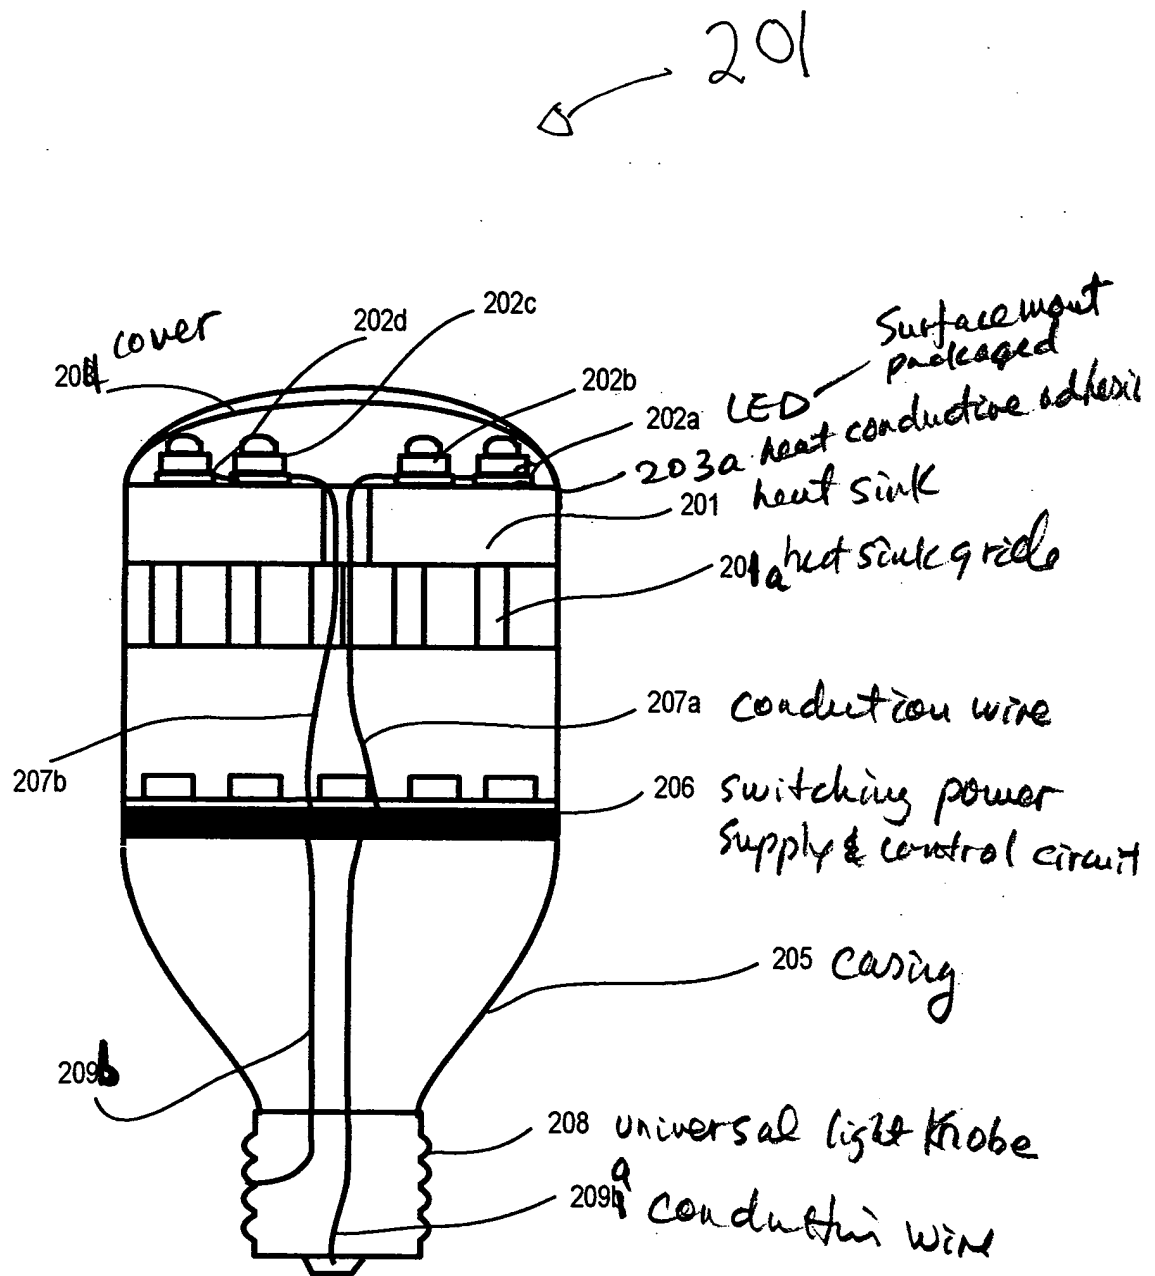 201
202c
202d
cover
204
Surface mount
packaged
202b
202a LED
203a heat conductive adhesic
201 heat sink
201a heat sink gride
207a conduction wire
207b
206 switching power
supply & control circuit
205 casing
209b
208 universal light Knobe
209a conduction wire